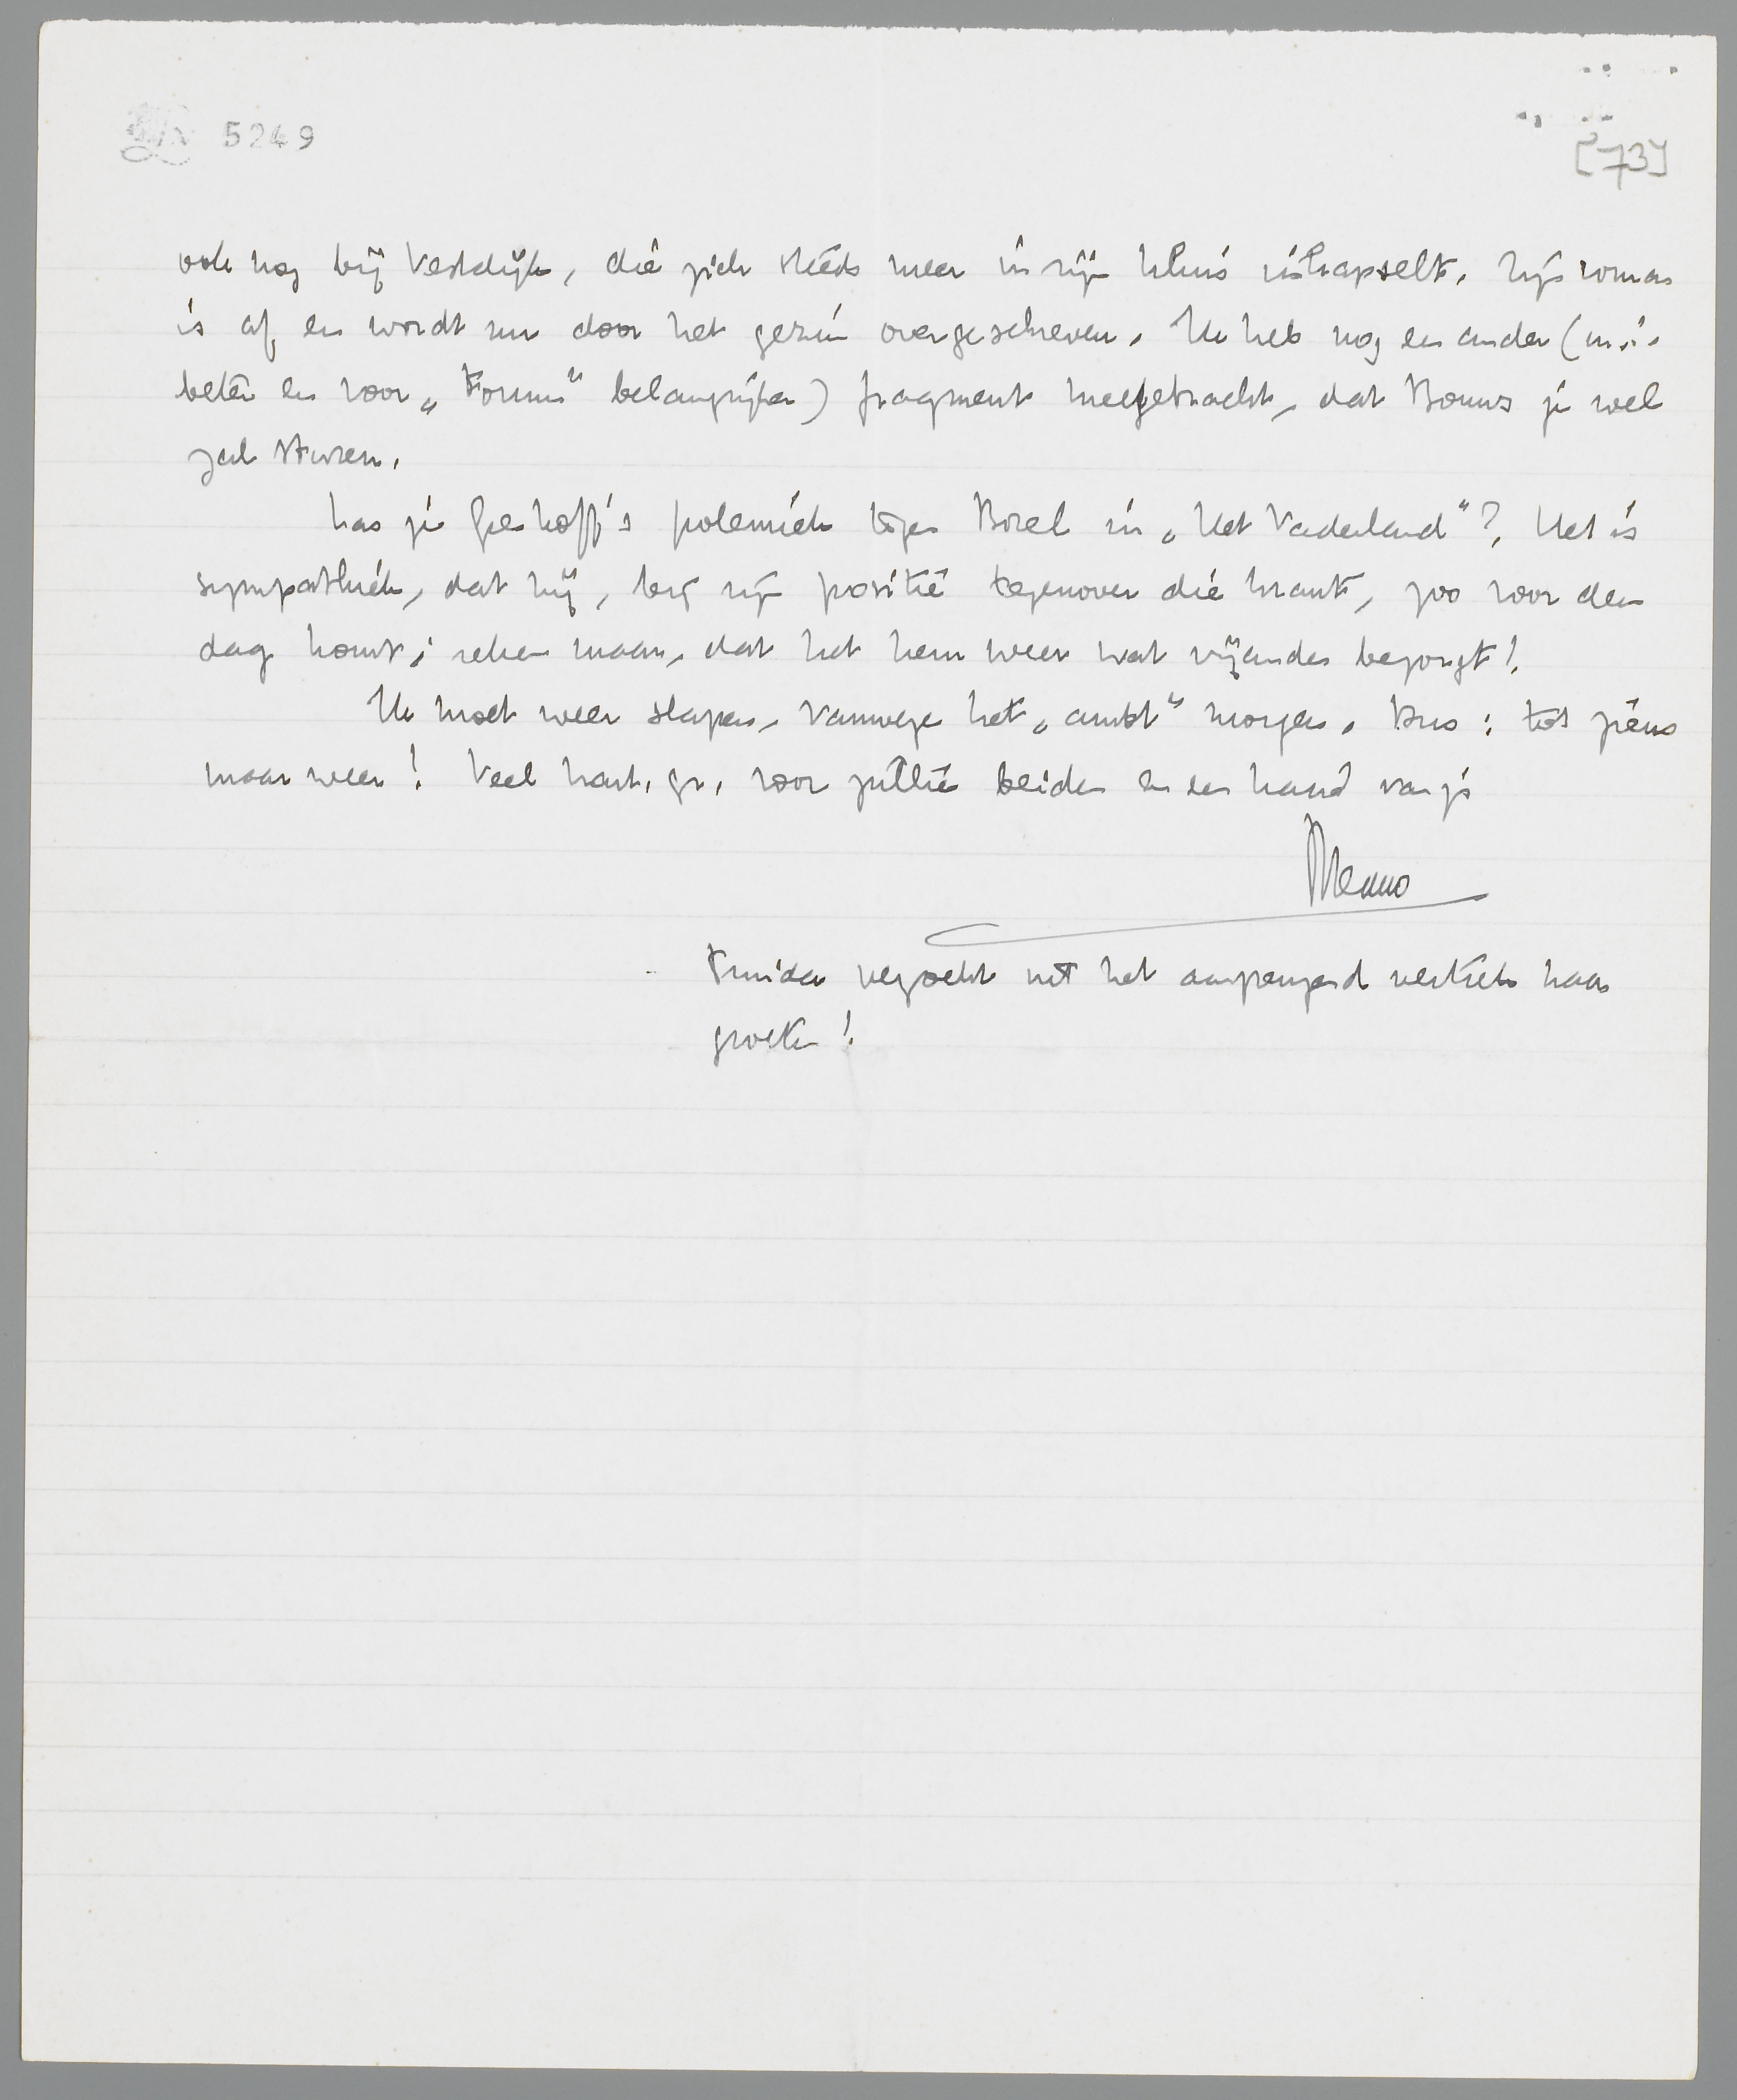 5249
[73]
ook nog bij Vestdijk, die zich steeds meer in zijn kluis inkapselt. Zijn roman
is af en wordt nu door het gezin overgeschreven. Ik heb nog een ander (m.i.
beter en voor „Forum” belangrijker) fragment meegebracht, dat Bouws je wel
zal sturen.
Las je Greshoff's polemiek tegen Borel in „Het Vaderland”? Het is
sympathiek, dat hij, bij zijn positie tegenover die krant, zoo voor den
dag komt; zeker maar, dat het hem weer wat vijanden bezorgt!
Ik moet weer slapen, vanwege het „ambt” morgen. Dus: tot ziens
maar weer! Veel hart. gr. voor jullie beiden en een hand van je
Menno
Truida verzoekt met het aanhangend vertrek haar
groeten!